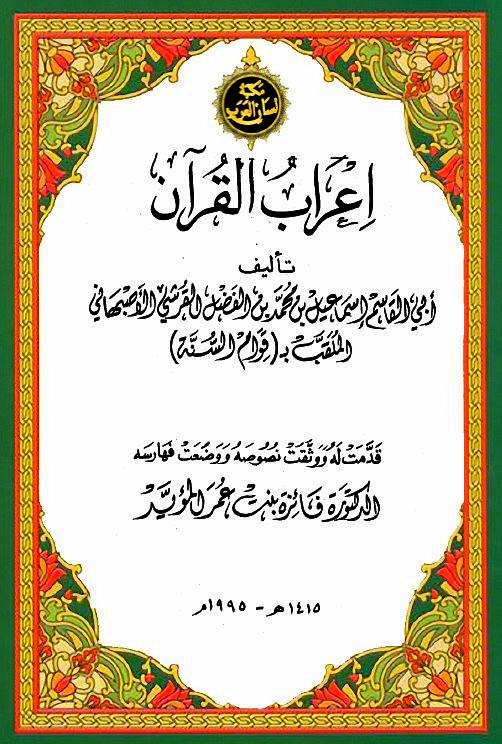 مكتبة
لسان العرب
إعْرَابُ القُرآن
تأليف
أبي القاسم إسماعيل بن محمد بن الفضل القرشي الأصبهاني
المُلَقَّب بـ (قوام السُّنَّة)
قَدَّمَتْ لَهُ وَوَثَّقَتْ نصُوصَهُ وَوَضَعَتْ فَهَارِسَه
الدكتورة فائزة بنت عمر المؤيَّد
١٤١٥هـ - ١٩٩٥م